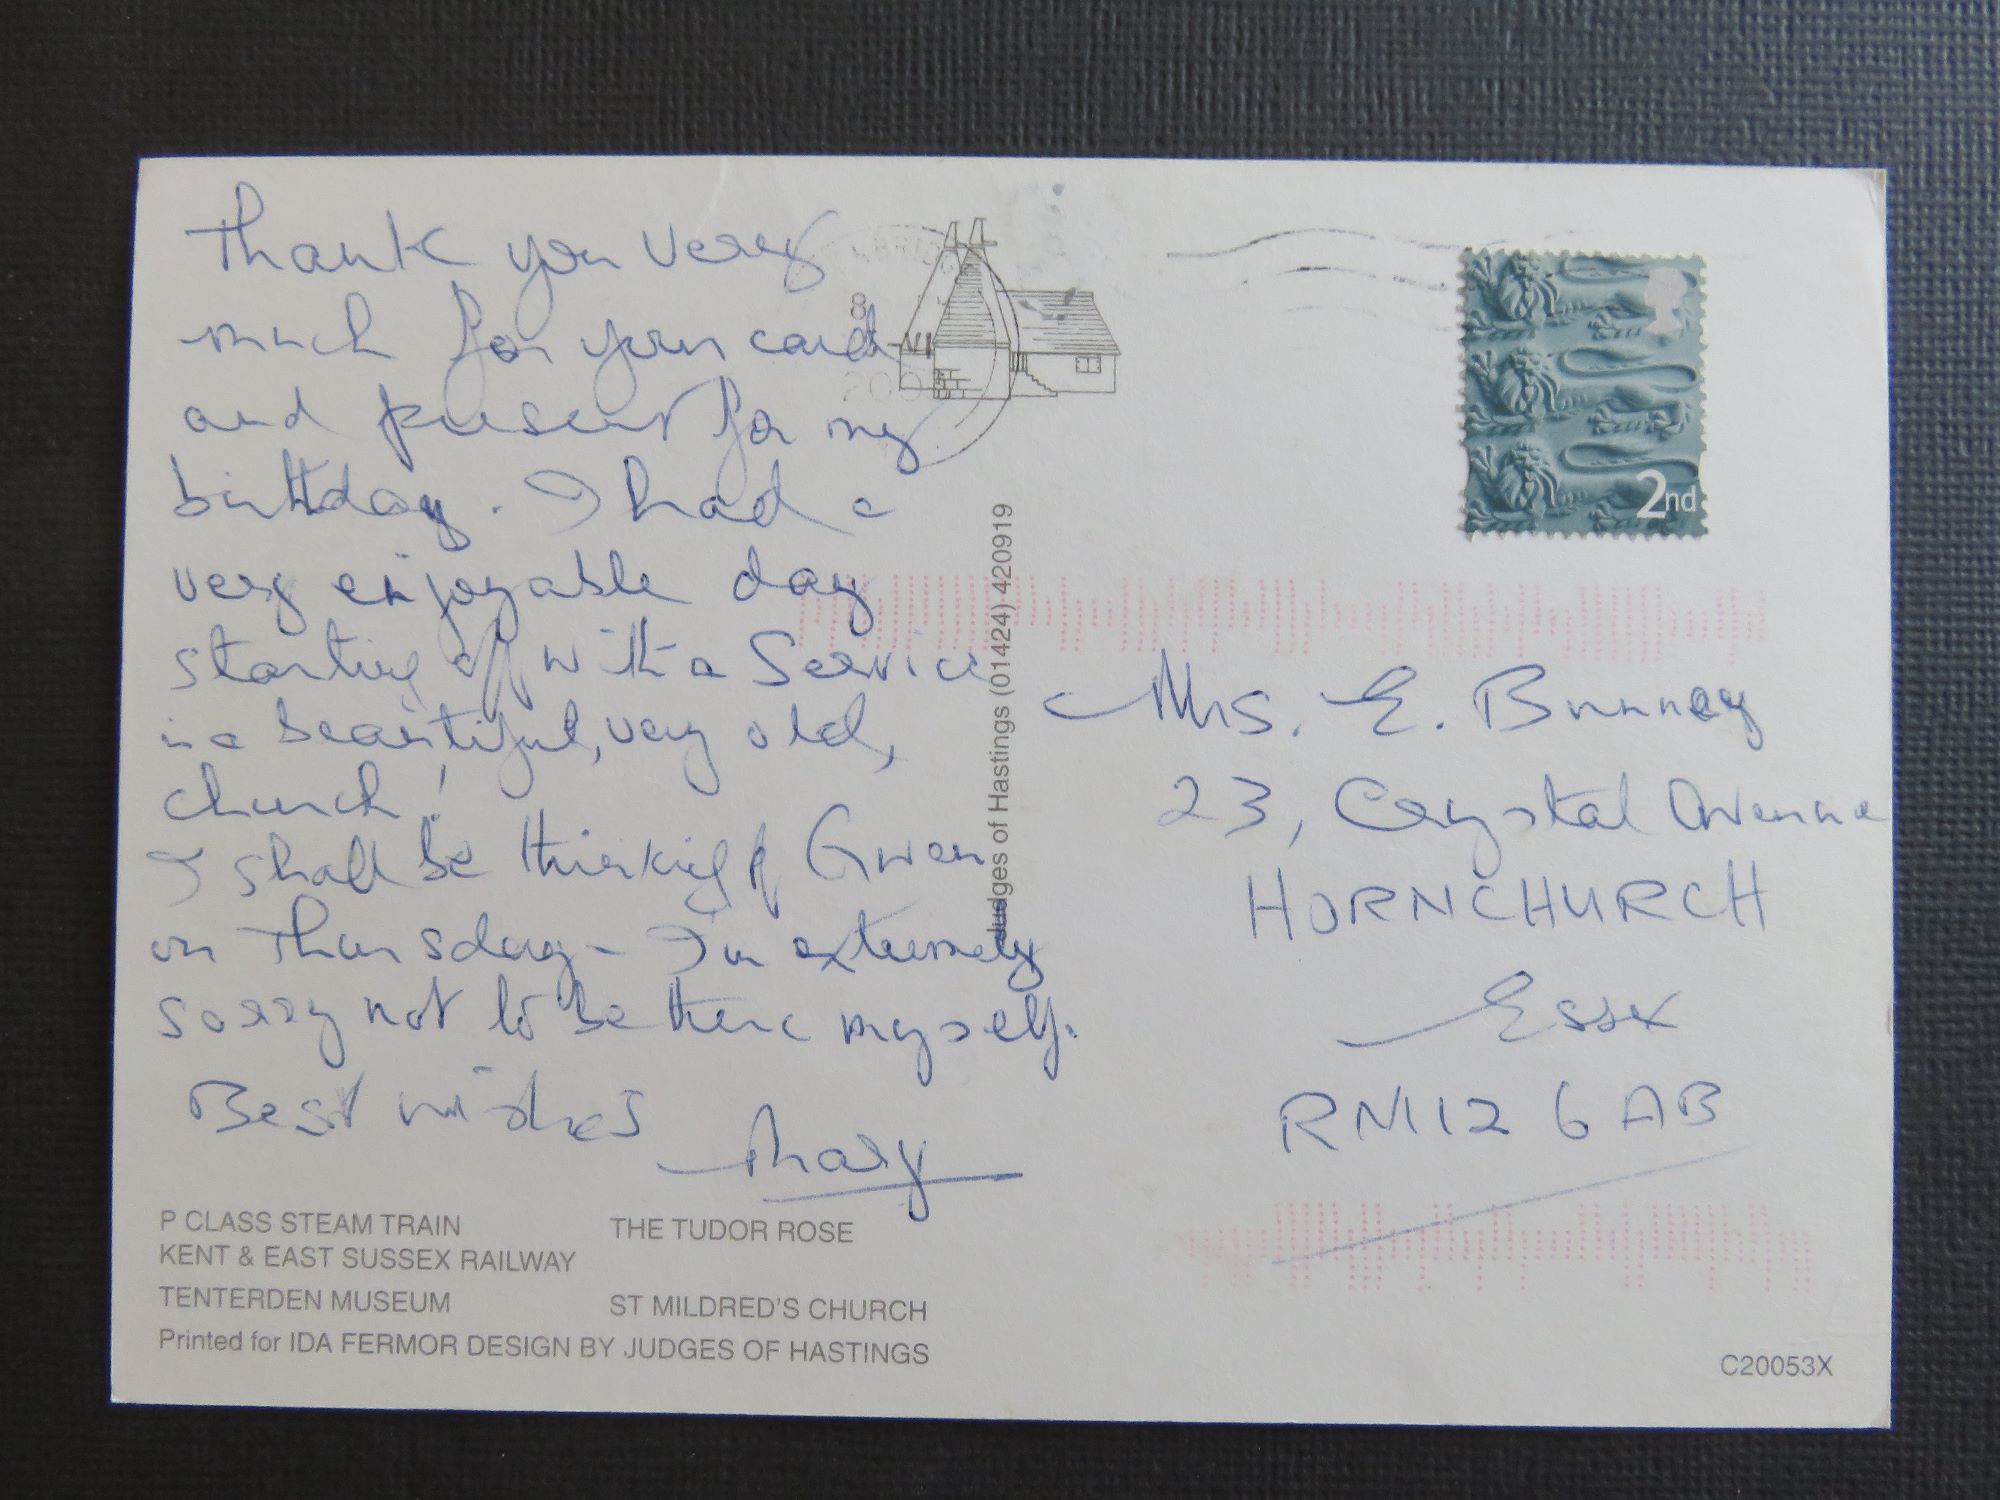 Thank you very
much for your card
and present for my
birthday. I had a
very enjoyable day
starting off with a Service
in a beautiful, very old,
church!
I shall be thinking of Gwen
on Thursday - I'm extremely
sorry not to be there myself.
Best wishes
Mary
P CLASS STEAM TRAIN
KENT & EAST SUSSEX RAILWAY
THE TUDOR ROSE
TENTERDEN MUSEUM
ST MILDRED'S CHURCH
Printed for IDA FERMOR DESIGN BY JUDGES OF HASTINGS
Judges of Hastings (01424) 420919
2nd
Mrs. E. Bunney
23, Crystal Avenue
HORNCHURCH
Essex
RM12 6AB
C20053X